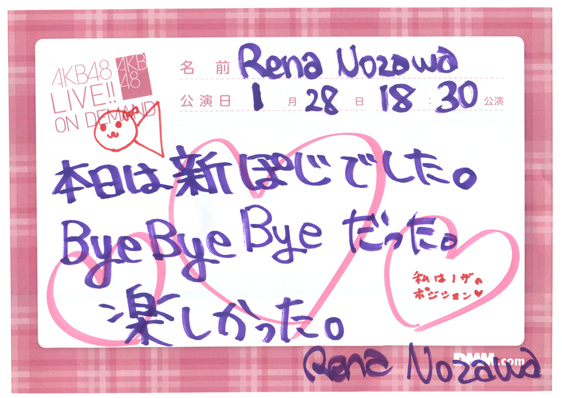 AKB48
LIVE!!
ON DEMAND
AKB
48
名前 Rena Nozawa
公演日 1月28日 18:30公演
本日は新ぽじでした。
Bye Bye Bye だった。
私は1ザの
ポジション♥
楽しかった。
Rena Nozawa
DMM.com